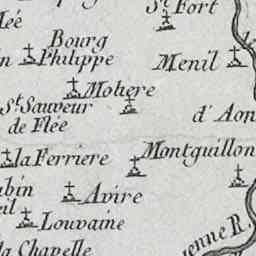 St. Fort
lée
Bourg
Philippe
Menil
Mohere
St. Sauveur
de Flée
d'Aon
la Ferriere
Montguillon
ubin
Avire
eil
Louvaine
uenne R.
la Chapelle